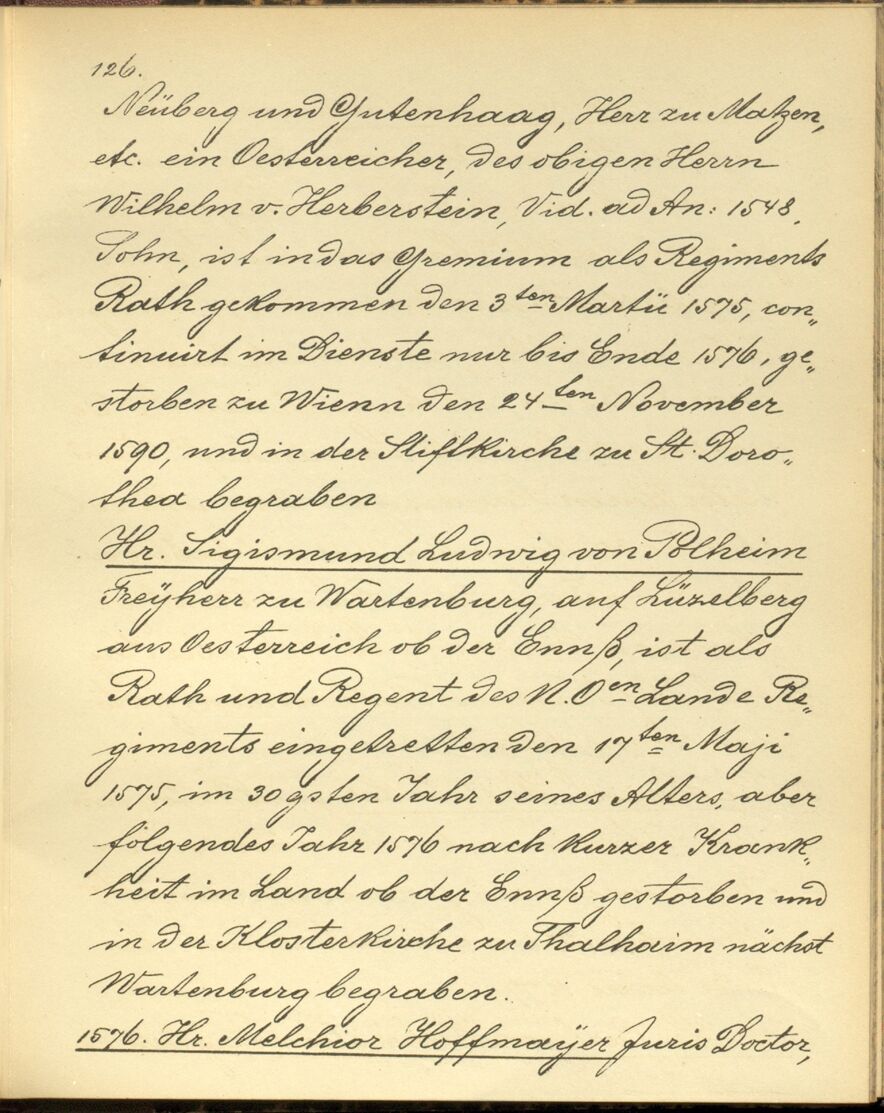 126.
Neüberg und Gutenhaag, Herr zu Matzen,
etc. ein Oesterreicher, des obigen Herrn
Wilhelm v. Herberstein, Vid. ad An: 1548,
Sohn, ist in das Gremium als Regiments
Rath gekommen den 3ten Martii 1575, con„
tinuirt im Dienste nur bis Ende 1576, ge„
storben zu Wienn den 24ten November
1590, und in der Stiftkirche zu St. Doro„
thea begraben
Hr. Sigismund Ludwig von Polheim
Freÿherr zu Wartenburg, auf Lüzelberg
aus Oesterreich ob der Ennß, ist als
Rath und Regent des N. Oen Lande Re„
giments eingetretten den 17ten Maji
1575, im 30gsten Jahr seines Alters, aber
folgendes Jahr 1576 nach kurzer Krank„
heit im Land ob der Ennß gestorben und
in der Klosterkirche zu Thalhaim nächst
Wartenburg begraben.
1576. Hr. Melchior Hoffmaÿer Juris Doctor,